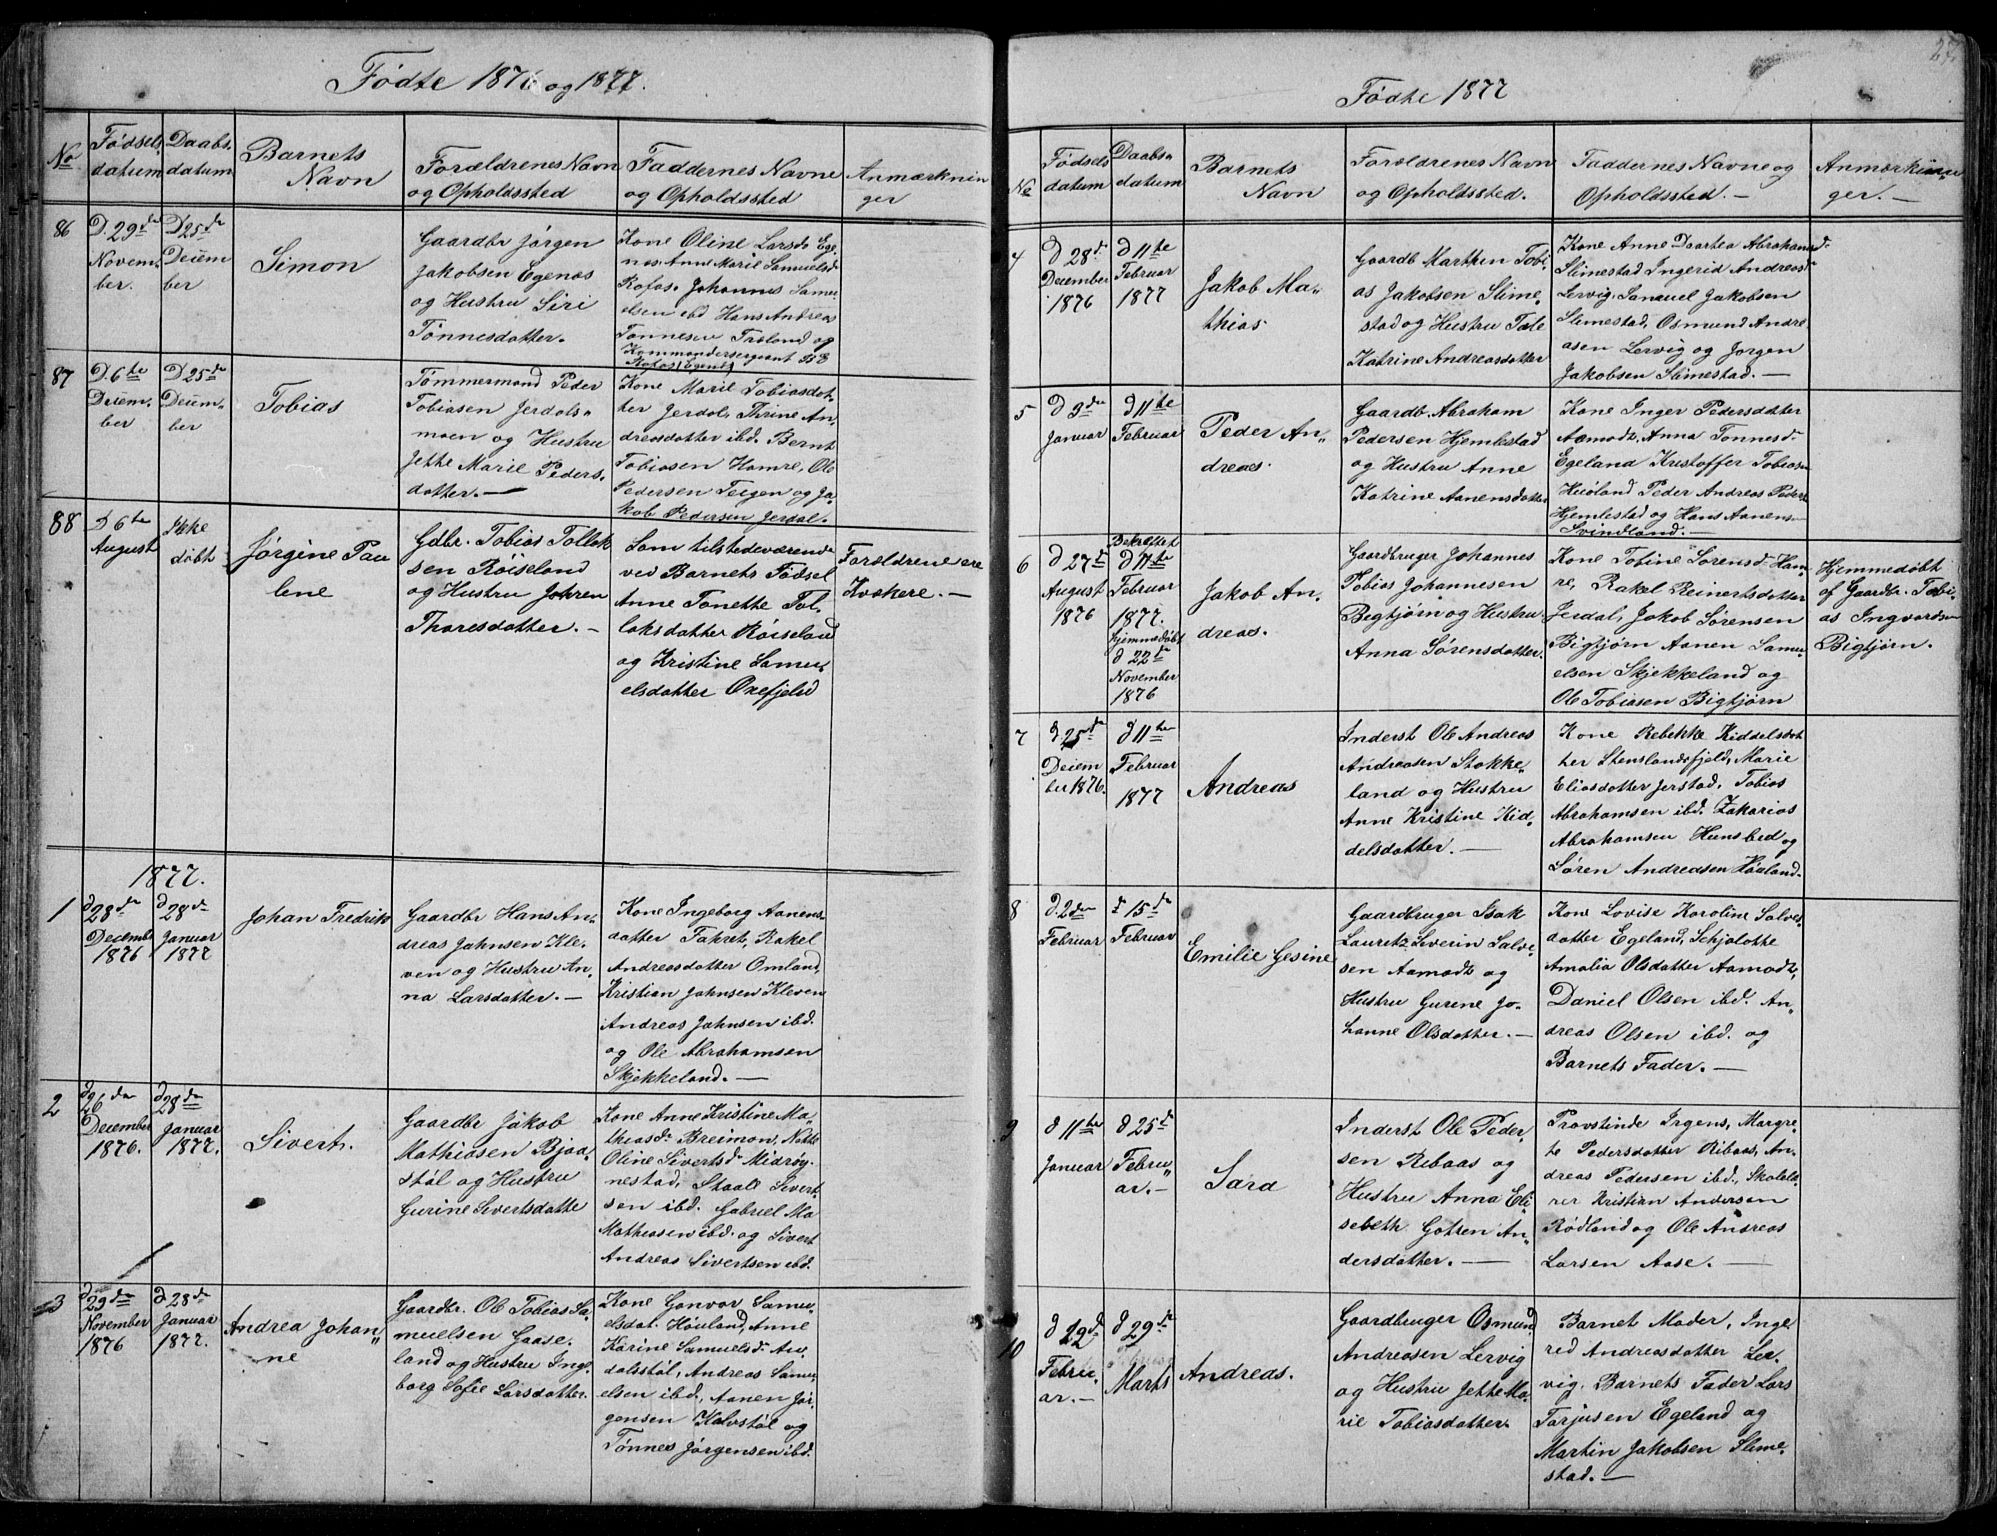 Fødte 1876 og 1877.
No
Fødsels
datum
Daabs
datum
Barnets
Navn
Forældrenes Navn
og Opholdssted
Faddernes Navne
og Opholdssted
Anmærknin
ger
86
D. 29de
Novem-
ber.
D 25de
Decem
ber
Simon
Gaardbr Jørgen
Jakobsen Egenæs
og Hustru Siri
Tønnesdatter.
Kone Oline Larsd. Ege-
næs. Anne Marie Samuelsd.
Røfos. Johannes Samu-
elsen ibd Hans Andreas
Tønnesen Troland og
Kommandersergeant
87
D. 6te
Decem-
ber
D. 25de
Decem-
ber
Tobias
Tømmermand Peder
Tobiasen Jerdals-
moen og Hustru
Jette Marie Peders-
datter. —
Kone Marie Tobiasdat-
ter Jerdal, Thrine An-
dreasdatter ibd. Bernt
Tobiasen Hamre, Ole
Pedersen Teigen og Ja-
kob Pedersen Jerdal.
88
D 6te
August
Ikke
døbt
Jørgine Pau
lene
Gdbr. Tobias Tollak
sen Röiseland
og Hustru Johren
Thoresdatter. —
Som tilstedeværende
ved Barnets Fødsel
Anne Tonette Tol-
laksdatter Röiseland
og Kristine Samu-
elsdatter Oxefjeld
Forældrene ere
Kvækere. —
1877.
1
d 28de
Decembr
1876
d 28de
Januar
1877
Johan Fredrik
Gaardbr Hans An-
dreas Jahnsen Kle-
ven og Hustru An-
na Larsdatter. —
Kone Ingeborg Aanens-
datter Fahret, Rakel
Andreasdatter Omland,
Kristian Jahnsen Kleven
Andreas Jahnsen ibd.
og Ole Abrahamsen
Skjekkeland. —
2
d 26de
December
1876.
d 28de
Januar
1877.
Sivert.
Gaardbr Jakob
Mathiasen Bjaa-
støl og Hustru
Gurine Sivertsdatte
Kone Anne Kristine Ma-
thiasdr Breimon, Nette
Oline Sivertsdr Midrøy-
nestad, Staale Sivert-
sen ibd. Gabriel Ma
Mathiasen ibd. og Sivert
Andreas Sivertsen ibd.
3
d 29de
November
1876
d 28de
Januar
1877.
Andrea Johan-
ne
Gaardbr. Ole Tobias Sa-
muelsen Gaase-
land og Hustru Inge
borg Sofie Larsdatter.
Kone Gonvor Samu-
elsdat. Høuland, Anne
Karine Samuelsdr Au-
dalstøl, Andreas Samu-
elsen ibd., Aanen Jør-
gensen Kalvstøl og
Tønnes Jørgensen ibd.
27.
Fødte 1877
No
Fødsels
datum
Daabs-
datum
Barnets
Navn
Forældrenes Navn
og Opholdssted.
Faddernes Navne og
Opholdssted. —
Anmærknin-
ger. —
4
d 28de
December
1876
d 11te
Februar
1877
Jakob Ma-
thias.
Gaardb Marthen Tobi-
as Jakobsen Slime-
stad og Hustru Tale
Katrine Andreasdatter
Kone Anne Daartea Abrahamsd-
Slimestad Ingerid Andreasdr
Lervig, Samuel Jakobsen
Slimestad, Osmund Andre-
asen Lervig og Jørgen
Jakobsen Slimestad. —
5
d 3de
Januar
d 11te
Februar
Peder An-
dreas.
Gaardb. Abraham
Pedersen Hjemlestad
og Hustru Anne
Katrine Aanensdatter
Kone Inger Pedersdatter
Aamodt, Anna Tønnesd-
Egeland Kristoffer Tobiasen
Huøland Peder Andreas Peders
Hjemlestad og Hans Aanens-
Svindland. —
6
d 27de
August
1876
Bekræftet
d 11te
Februar
1877.
Hjemmedøbt
d 22de
November
1876
Jakob An-
dreas.
Gaardbruger Johannes
Tobias Johannesen
Bigtjørn og Hustru
Anna Sørensdatter.
Kone Tobine Sørensd- Ham-
re, Rakel Reinertsdatter
Jerdal, Jakob Sørensen
Bigtjørn Aanen Samu-
elsen Skjekkeland og
Ole Tobiasen Bigtjørn
Hjemmedøbt
af Gaardbr. Tobi-
as Ingvardsen
Bigtjørn.
7
d. 25de
Decem
ber 1876.
d 11te
Februar
1877
Andreas
Inderst Ole Andreas
Andreasen Stokke-
land og Hustru
Anne Kristine Kid-
delsdatter. —
Kone Rebekke Kiddelsdat
ter Stenslandsfjeld, Marie
Eliasdatter Jerstad, Tobias
Abrahamsen ibd. Zakarias
Abrahamsen Hunsbed og
Søren Andreasen Høaland.
8
d. 2den
Februar
d 15de
Februar
Emilie Gesine
Gaardbruger Isak
Lauritz Severin Salve-
sen Aamodt og
Hustru Gurene Jo-
hanne Olsdatter. —
Kone Lovise Karoline Salves
datter Egeland, Schjalotte
Amalia Olsdatter Aamodt,
Daniel Olsen ibd. An-
dreas Olsen ibd. og
Barnets Fader. —
9
d 11te
Januar
d 25de
Febru-
ar. —
Sara
Inderst Ole Peder-
sen Ribaas og
Hustru Anna Eli
sebeth Gotren An-
dersdatter. —
Provstinde Irgens, Margre-
te Pedersdatter Ribaas, An-
dreas Pedersen ibd., Skolelæ-
rer Kristian Andersen
Rødland og Ole Andreas
Larsen Aase. —
10
d 22de
Febru-
ar. —
d 29de
Marts
Andreas.
Gaardbruger Osmund
Andreasen Lervig
og Hustru Jette Ma-
rie Tobiasdatter.
Barnet Moder, Inge
red Andreasdatter Ler-
vig. Barnets Fader Lars
Tarjusen Egeland og
Martin Jakobsen Slime-
stad. —